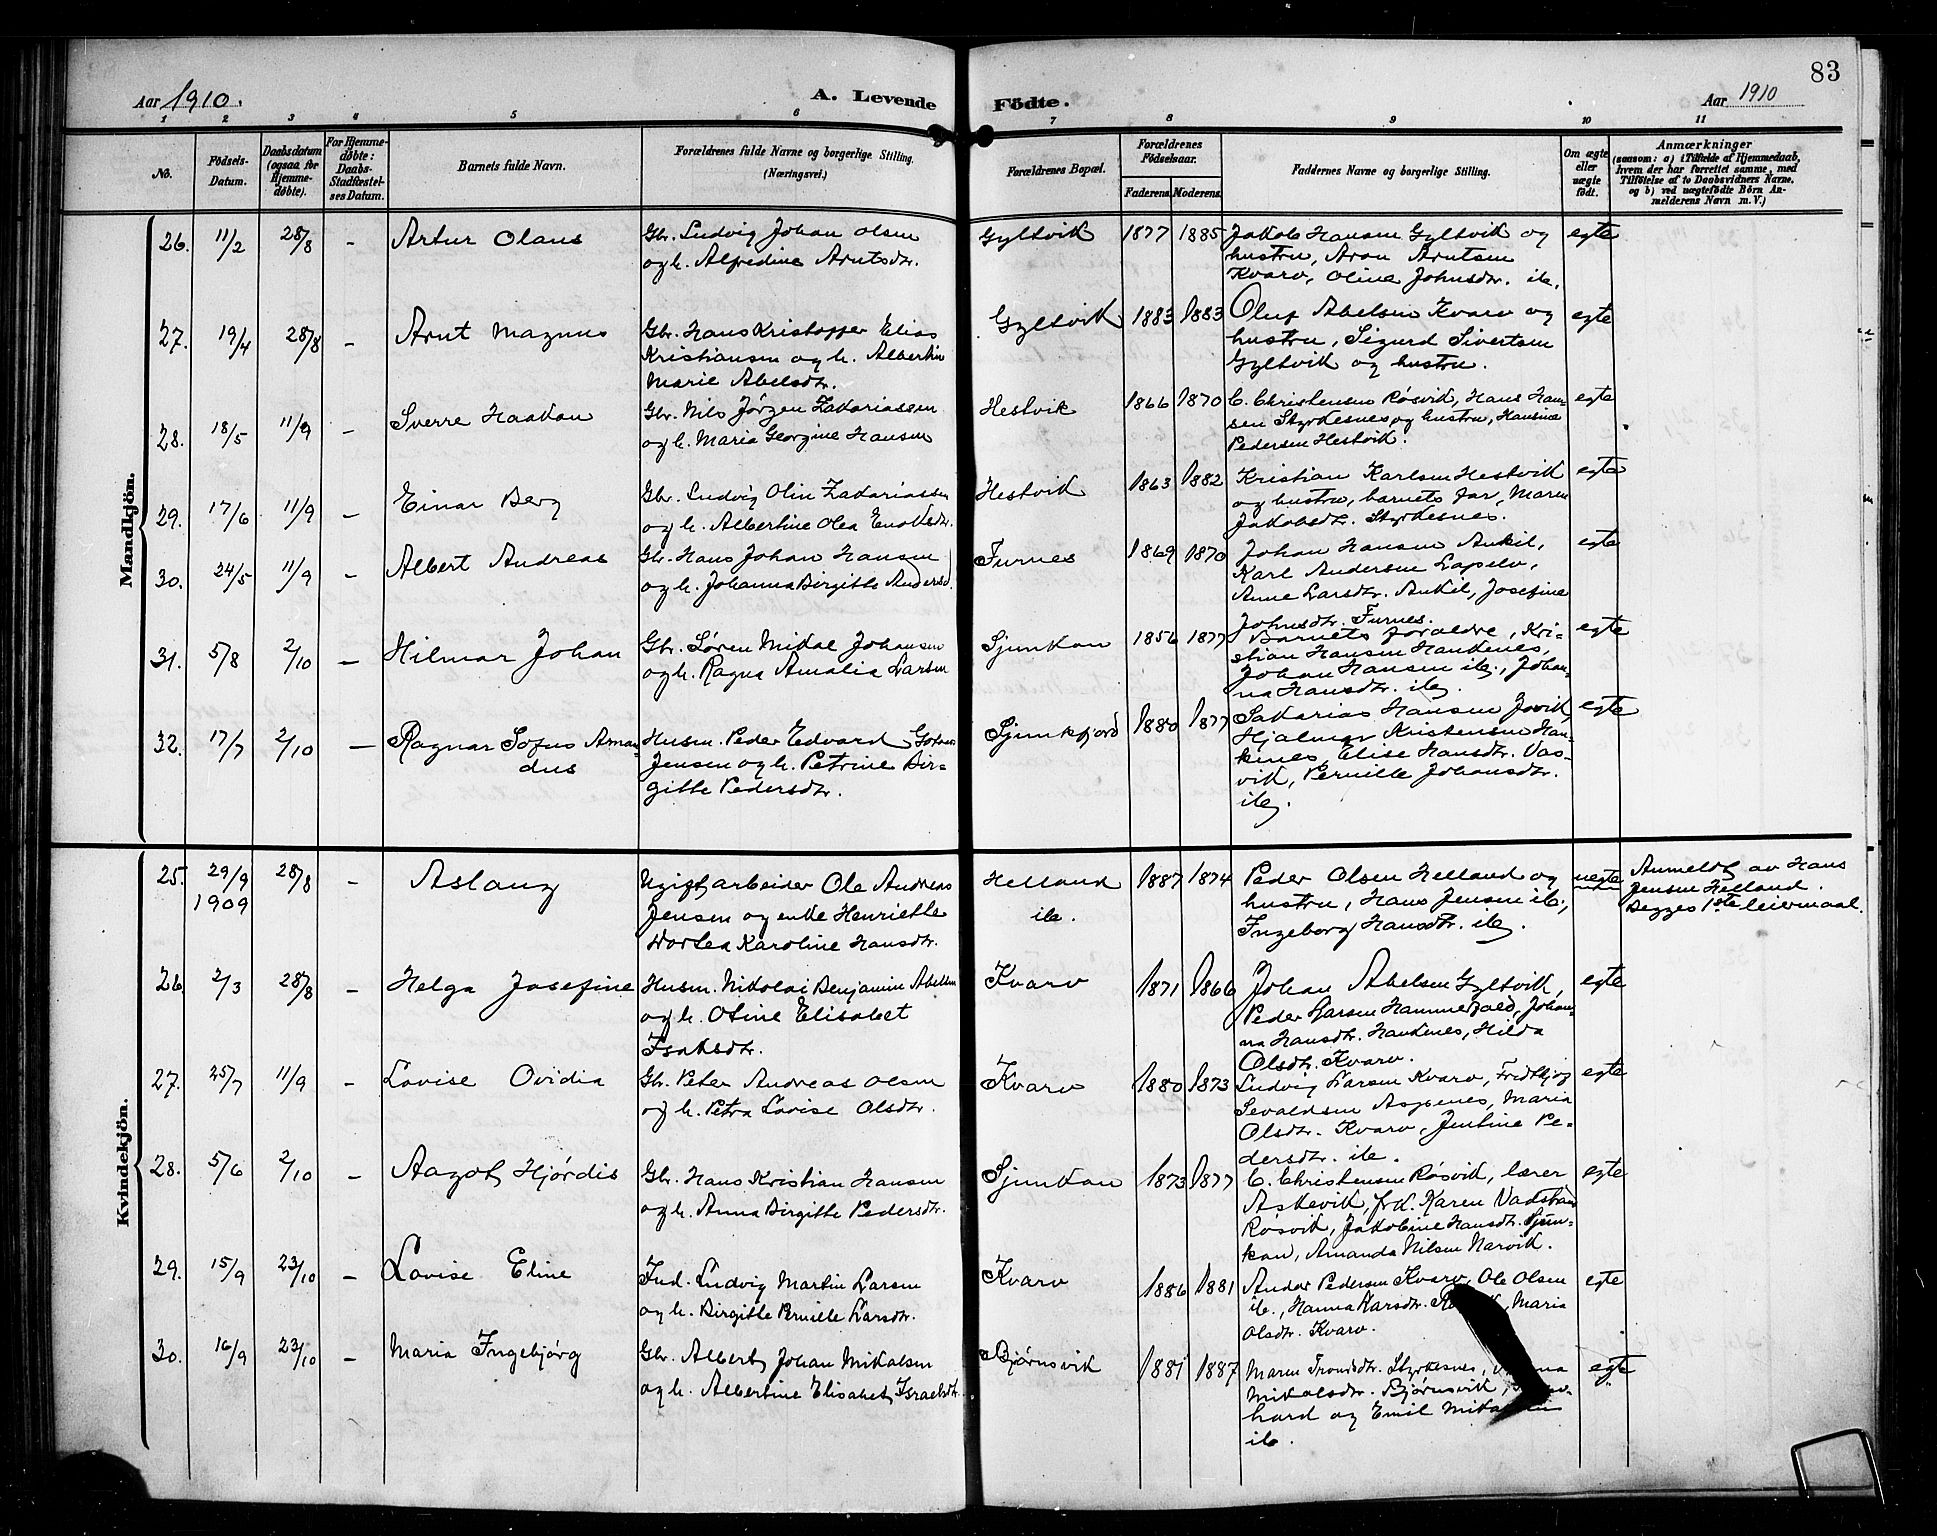 83
Aar 1910. A. Levende Födte. Aar 1910
1 2 3 4 5 6 7 8 9 10 11
No. Födsels-Datum. Daabsdatum (ogsaa for Hjemmedöbte). For Hjemmedöbte: Daabs-Stadfæstelses Datum. Barnets fulde Navn. Forældrenes fulde Navne og borgerlige Stilling. (Næringsvei.) Forældrenes Bopæl. Forældrenes Födselsaar. Faderens. Moderens. Faddernes Navne og borgerlige Stilling. Om ægte eller uægte födt. Anmærkninger
(saasom: a) i Tilfælde af Hjemmedaab,
hvem der har forrettet samme, med
Tilföielse af to Daabsvidners Navne,
og b) ved uægtefödte Börn An-
melderens Navn m. V.)
Mandkjön.
26. 11/2 28/8 - Artur Olaus
Gbr. Ludvig Johan Olsen
og h. Alfredine Arntsdtr.
Gyltvik 1877 1885
Jakob Hansen Gyltvik og
hustru, Aron Arntsen
Kvarv, Oline Johnsdtr. ib.
egte
27. 19/4 28/8 - Arnt Magnus
Gbr. Hans Kristoffer Elias
Kristiansen og h. Albertin
Marie Abelsdtr.
Gyltvik 1883 1883
Oluf Abelsen Kvarv og
hustru, Sigurd Sivertsen
Gyltvik og hustru.
egte
28. 18/5 11/9 - Sverre Haakon
Gbr. Nils Jørgen Zakariassen
og h. Maria Georgine Hansen
Hestvik 1866 1870
C. Christensen Røsvik, Hans Han-
sen Styrkesnes og hustru, Hansine
Pedersen Hestvik.
egte
29. 17/6 11/9 - Einar Berg
Gbr. Ludvig Olin Zakariassen
og h. Albertine Olea Enoksdtr.
Hestvik 1863 1882
Kristian Karlsen Hestvik
og hustru, barnets far, Maren
Jakobsdtr. Styrkesnes.
egte
30. 24/5 11/9 - Albert Andreas
Gbr. Hans Johan Hansen
og h. Johanna Birgitte Andersd
Furnes 1869 1870
Johan Hansen Ankil,
Karl Andersen Lapelv,
Anne Larsdtr. Ankil, Josefine
Johnsdtr. Furnes.
egte
31. 5/8 2/10 - Hilmar Johan
Gbr. Søren Mikal Johansen
og h. Ragna Amalia Larsen
Sjunkan 1856 1877
Barnets forældre, Kri-
stian Hansen Hankenes,
Johan Hansen ib., Johan-
na Hansdtr. ib.
egte
32. 17/7 2/10 - Ragnar Sofus Aman-
dus
Husm. Peder Edvard
Jensen og h. Petrine Bir-
gitte Pedersdtr.
Sjunkfjord 1880 1877
Sakarias Hansen
Hjalmar Kristensen Han-
kenes, Elise Hansdtr. Vas-
vik, Pernille Johansdtr.
ib.
egte
Kvindekjön.
25. 29/9 1909 28/8 - Aslaug
Ugift arbeider Ole Andreas
Jensen og enke Henriette
Dortea Karoline Hansdtr.
Helland
ib.
1887 1874
Peder Olsen Helland og
hustru, Hans Jensen ib.,
Ingeborg Hansdtr. ib.
uegte
Anmeldt av Hans
Jensen Helland.
Begges 1ste leiermaal.
26. 2/3 28/8 - Helga Josefine
Husm. Nikolai Benjamin Abelsen
og h. Otine Elisabet
Isaksdtr.
Kvarv 1871 1866
Johan Abelsen Gyltvik,
Peder Larsen Hammerfald, Johan-
na Hansdtr. Hankenes, Hilda
Olsdtr. Kvarv.
egte
27. 25/7 11/9 - Lovise Ovidia
Gbr. Peter Andreas Olsen
og h. Petra Lovise Olsdtr.
Kvarv 1880 1873
Ludvig Larsen Kvarv, Fredtbjog
Sevaldsen Aspenes, Maria
Olsdtr. Kvarv, Jentine Pe-
dersdtr. ib.
egte
28. 5/6 2/10 - Aagot Hjørdis
Gbr. Hans Kristian Hansen
og h. Anna Birgitte Pedersdtr.
Sjunkan 1873 1877
C. Christensen Røsvik, lærer
Askevik, frk. Karen
Røsvik, Jakobine Hansdtr. Sjun-
kan, Amanda Nilsen Narvik.
egte
29. 15/9 23/10 - Lovise Eline
Ind. Ludvig Martin Larsen
og h. Birgitte Pernille Larsdtr.
Kvarv 1886 1881
Andor Pedersen Kvarv, Ole Olsen
ib., Hanna Larsdtr. Maria
Olsdtr. Kvarv.
egte
30. 16/9 23/10 - Maria Ingebjørg
Gbr. Albert Johan Mikalsen
og h. Albertine Elisabet Israelsdtr.
Bjørnsvik 1881 1887
Maren Trondsdtr. Styrkesnes,
Mikalsdtr. Bjørnsvik,
hard og Emil
ib.
egte